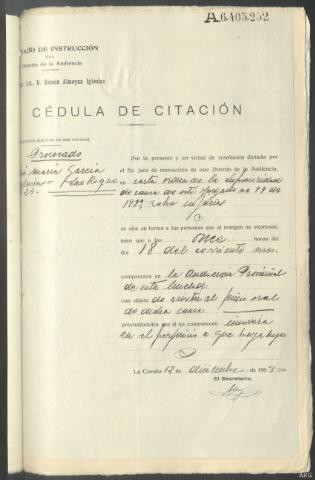 A.6.405.252
DE INSTRUCCIÓN
DEL
Distrito de la Audiencia
D. Román Almoyna Iglesias
CÉDULA DE CITACIÓN
QUE HAN DE SER CITADAS
Procesado
María García
San Roque
25-
Por la presente y en virtud de resolución dictada por
el Sr. Juez de instrucción de este Distrito de la Audiencia,
en carta orden de la superioridad
de causa de este Juzgado nº 79 de
1922 sobre injurias
se cita en forma a las personas que al margen se expresan,
para que a las once horas del
día 18 del corriente mes
comparezcan en la Audiencia Provincial
de esta Ciudad
con objeto de asistir al juicio oral
de dicha causa
previniéndoles que si no comparecen incurrirá
en el perjuicio a que haya lugar
La Coruña 12 de diciembre de 1923
El Secretario,
ARG